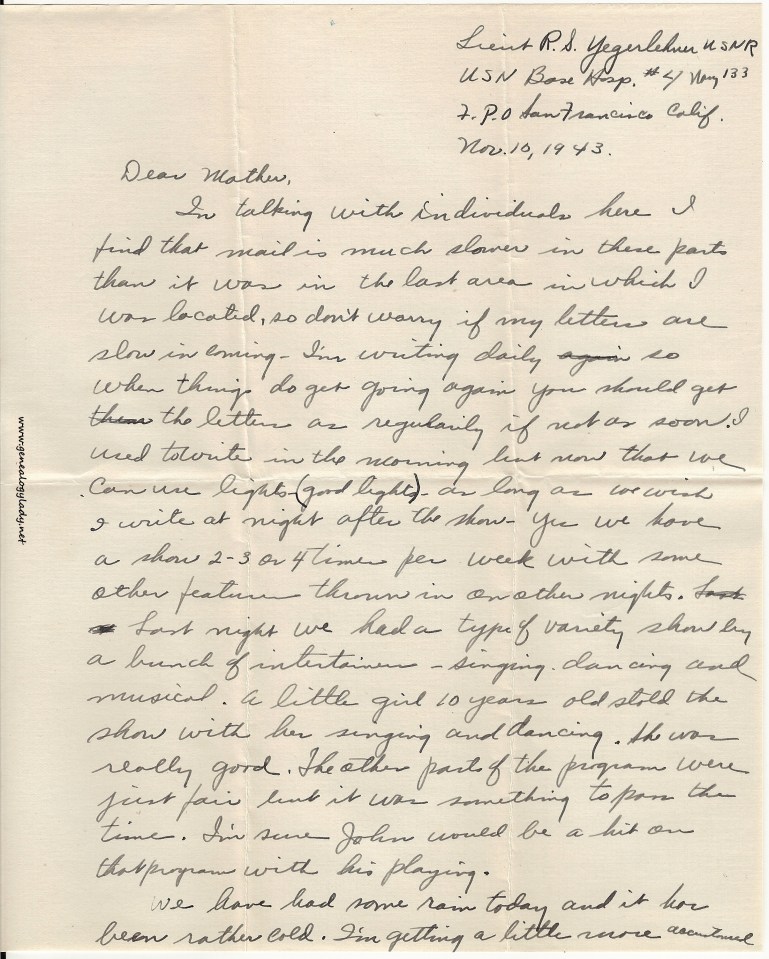 Lieut R. S. Yegerlehner USNR
USN Base Hosp. #4 Navy 133
F.P.O San Francisco Calif.
Nov. 10, 1943.
Dear Mother,
In talking with individuals here I
find that mail is much slower in these parts
than it was in the last area in which I
was located, so don't worry if my letters are
slow in coming - I'm writing daily again so
when things do get going again you should get
them the letters as regularily if not as soon. I
used to write in the morning but now that we
can use lights - (good lights) - as long as we wish
I write at night after the show - Yes we have
a show 2-3 or 4 times per week with some
other features thrown in on other nights. Last
Last night we had a type of variety show by
a bunch of intertainers - singing. dancing and
musical. A little girl 10 years old stold the
show with her singing and dancing. She was
really good. The other parts of the program were
just fair but it was something to pass the
time. I'm sure John would be a hit on
that program with his playing.
We have had some rain today and it has
been rather cold. I'm getting a little more accustomed
www.genealogylady.net